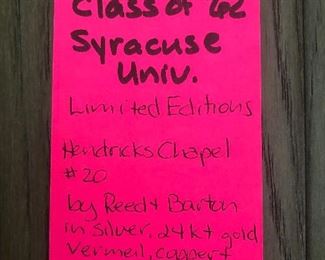 Class of '62
Syracuse
Univ.
Limited Editions
Hendricks Chapel
#20
by Reed + Barton
in silver, 24kt gold
vermeil, copper +